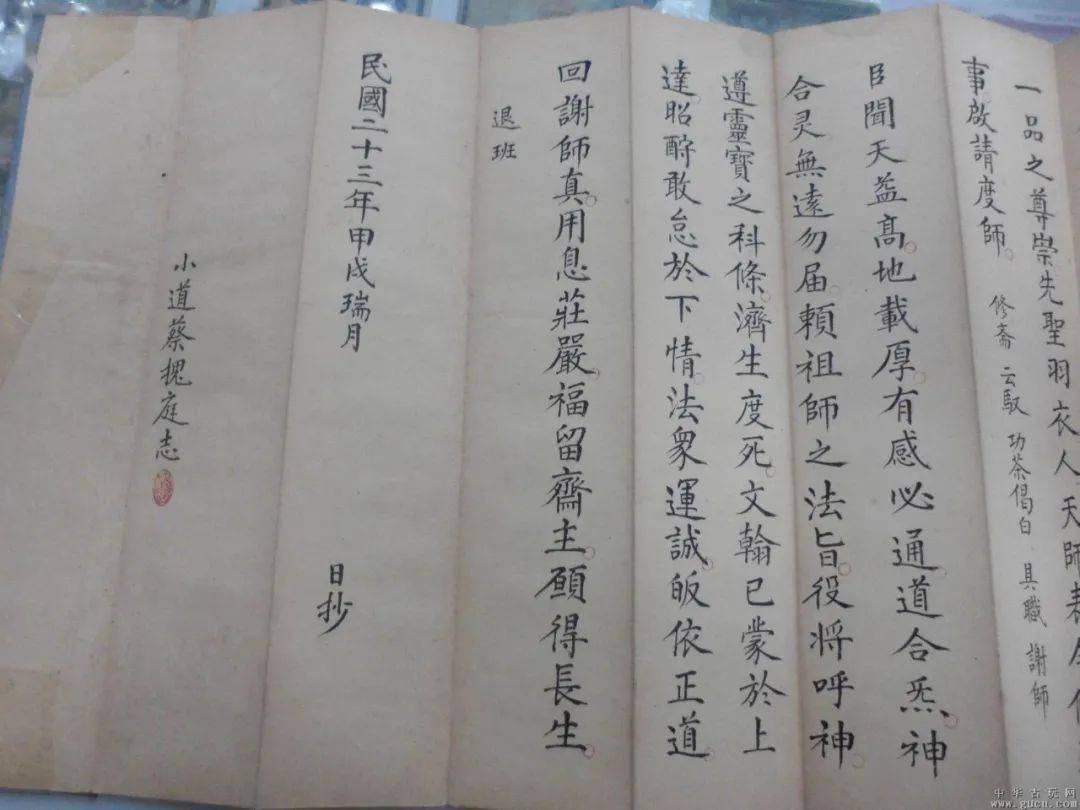 一品之尊崇先聖羽衣人天師表
事啟請度師。 修斋 云馭 功茶偈白 具職 謝師
臣聞天蓋高。地載厚。有感必通道合炁。神
合灵無遠勿届。賴祖師之法旨。役將呼神
遵靈寶之科條。濟生度死。文翰已蒙於上
達。昭酧敢怠於下情。法衆運誠。皈依正道
回謝師真。用息莊嚴。福留齋主。願得長生。
退班
民國二十三年甲戌瑞月
日抄
小道蔡槐庭志
中华古玩网
www.gucn.com